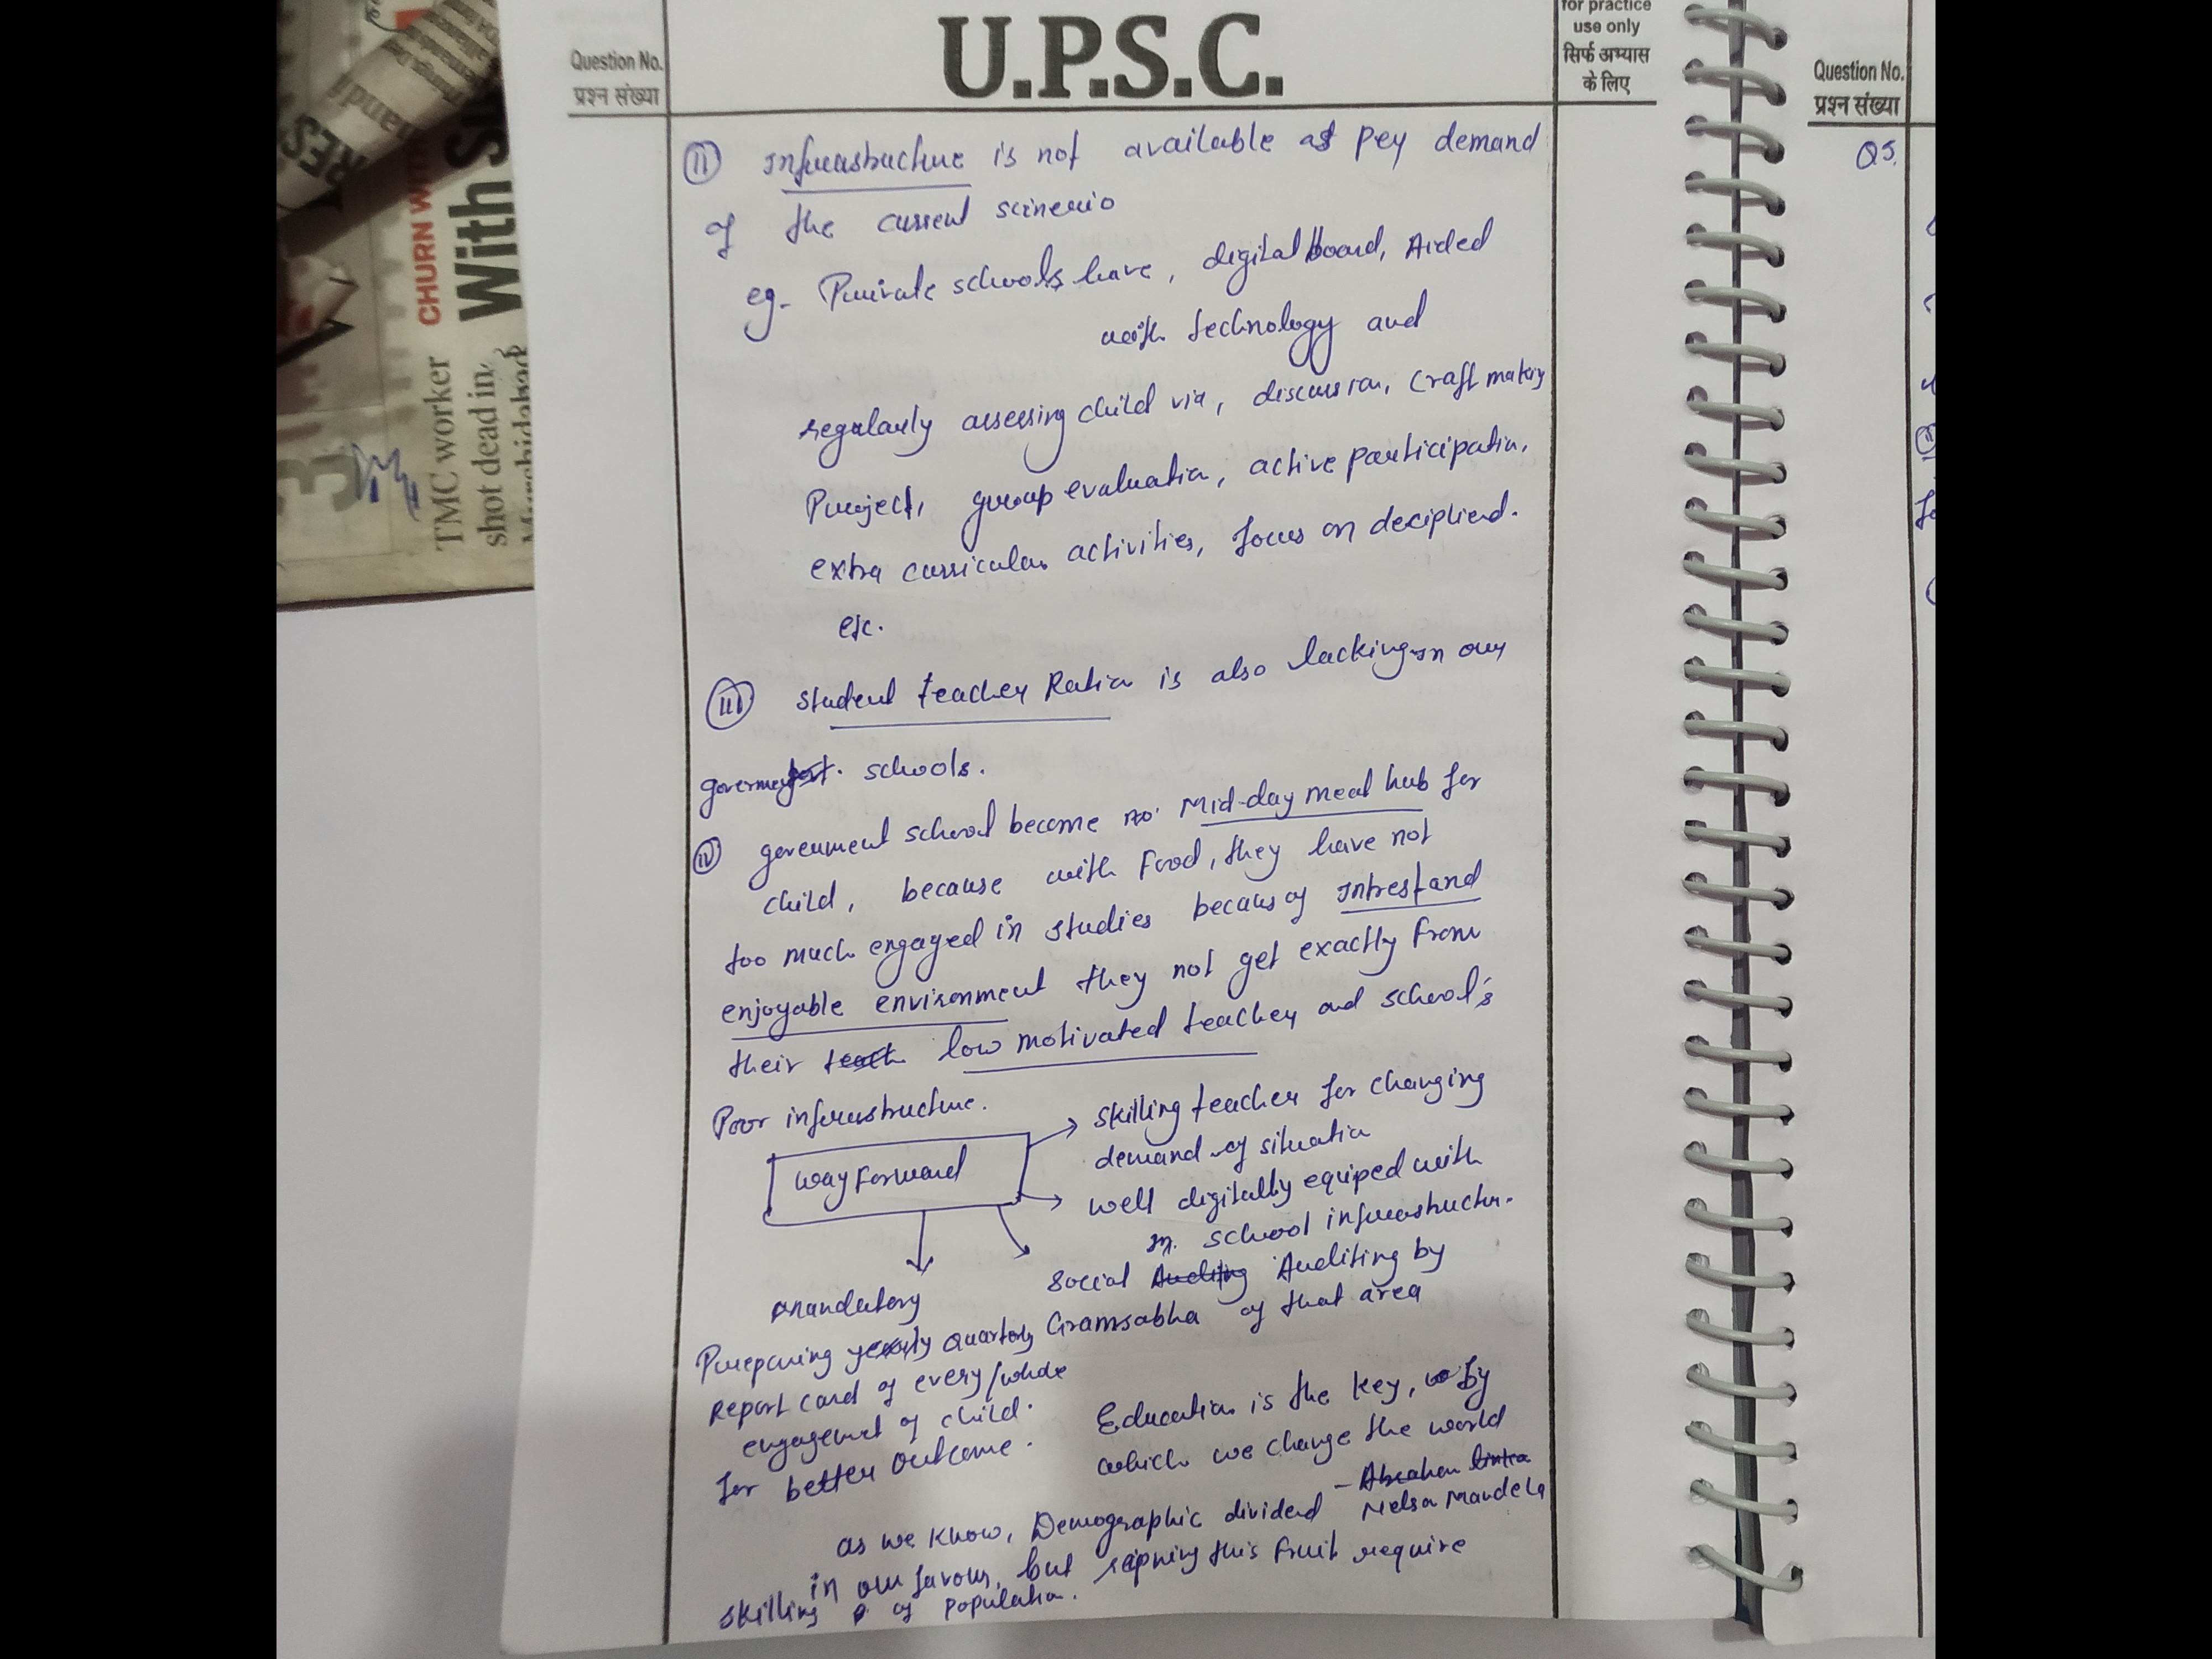 Question No.
प्रश्न संख्या
U.P.S.C.
for practice
use only
सिर्फ अभ्यास
के लिए
(II) Infrastructure is not available as per demand
of the current scinerio
eg- Private schools have, digital board, Aided
with technology and
regularly assessing child via, discussion, craft making
Project, group evaluation, active participation,
extra curricular activities, focus on deciplied.
etc.
(III) Student teacher Ration is also lacking in our
goverment govt. schools.
(IV) goverment school become Mid-day meal hub for
child, because with Food, they have not
too much engaged in studies becaus of Intrest and
enjoyable environment they not get exactly from
their teach low motivated teacher and school's
Poor infrastructure.
Way Forward
skilling teacher for changing
demand of situation
well digitally equiped with
in school infrastructur.
Social Auditing Auditing by
Gramsabha of that area
mandatory
Preparing yearly quarterly
Report card of every/whole
engagement of child.
for better outcome.
Education is the key, by
which we change the world
- Abraham linkn
Nelson Mandela
as we know, Demographic dividend
in our favour, but reipning this fruit require
skilling of population.
Question No.
प्रश्न संख्या
Q5.
RES
CHURN WITH
With S
TMC worker
shot dead in
Murshidabad